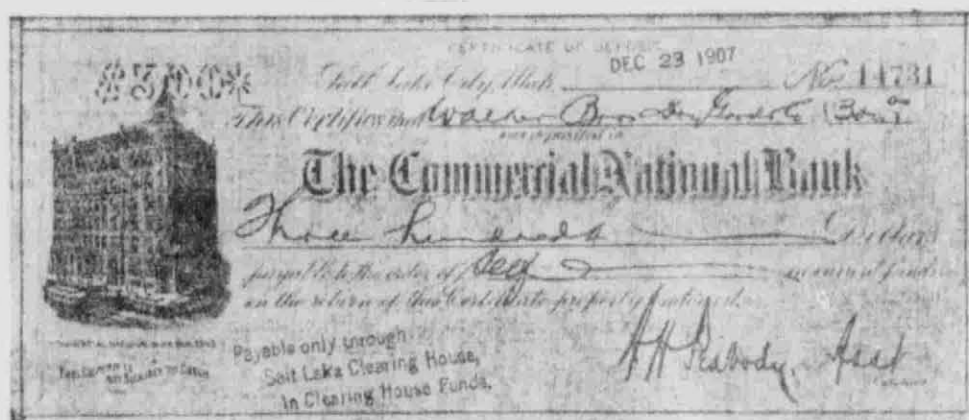 CERTIFICATE OF DEPOSIT
$300$
Salt Lake City, Utah DEC 23 1907 No. 14731
This Certifies that Walker Bros Dry Goods Co
have deposited in
The Commercial National Bank
Three hundred Dollars
payable to the order of Self in current funds
on the return of this Certificate properly endorsed.
Payable only through
Salt Lake Clearing House,
in Clearing House Funds.
H H Peabody, Asst
NOT SUBJECT TO CHECK